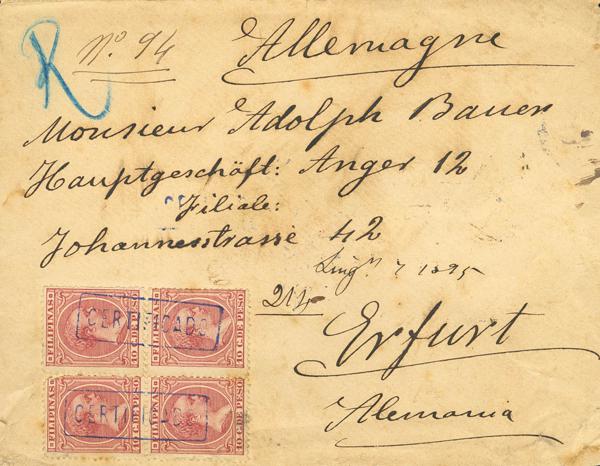 R
No. 94
Allemagne
Monsieur Adolph Bauer
Hauptgeschäft: Anger 12
Filiale:
Johannesstrasse 42
7 1895
214
Erfurt
Alemania
FILIPINAS
FILIPINAS
10 C. DE PESO
10 C. DE PESO
CERTIFICADO
FILIPINAS
FILIPINAS
10 C. DE PESO
10 C. DE PESO
CERTIFICADO